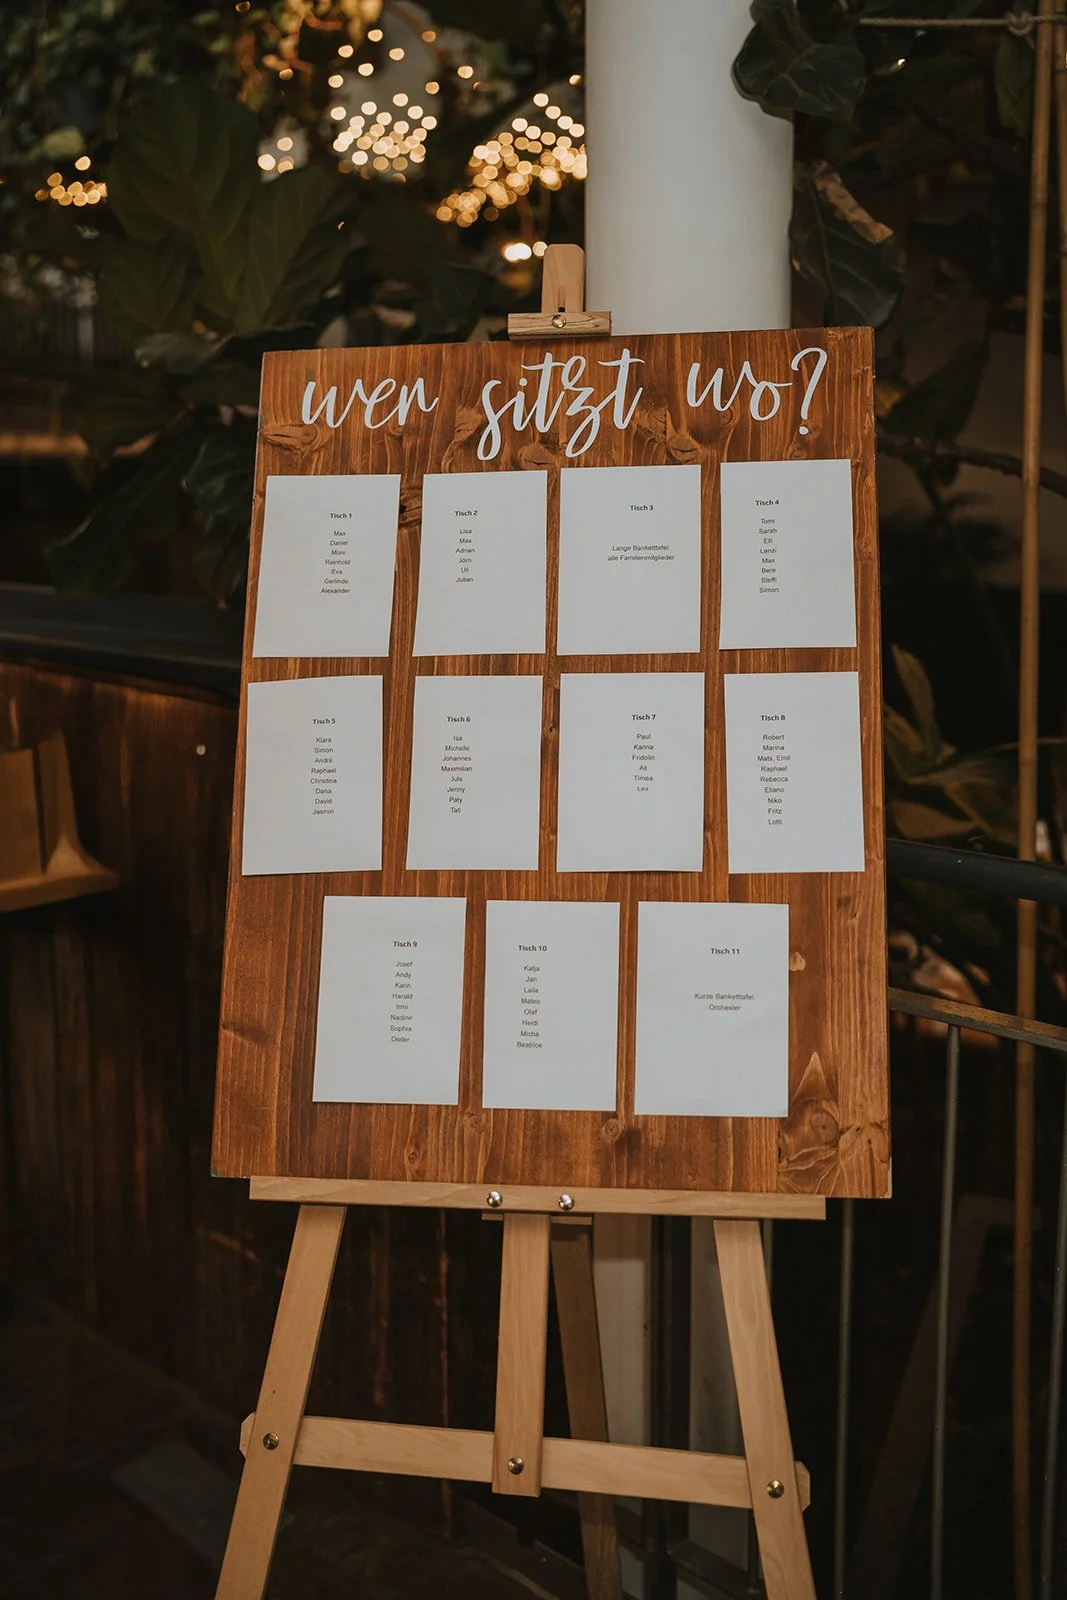 wer sitzt wo?
Tisch 1
Max
Daniel
Moni
Reinhold
Eva
Gerlinde
Alexander
Tisch 2
Lisa
Max
Adrian
Jörn
Uli
Julian
Tisch 3
Lange Banketttafel:
alle Familienmitglieder
Tisch 4
Tomi
Sarah
Elli
Lenzi
Max
Bere
Steffi
Simon
Tisch 5
Klara
Simon
André
Raphael
Christina
Dana
David
Jasmin
Tisch 6
Isa
Michelle
Johannes
Maximilian
Juls
Jenny
Paty
Tati
Tisch 7
Paul
Karina
Fridolin
Ali
Timea
Lea
Tisch 8
Robert
Marina
Mats, Emil
Raphael
Rebecca
Eliano
Niko
Fritz
Lotti
Tisch 9
Josef
Andy
Karin
Harald
Irmi
Nadine
Sophia
Dieter
Tisch 10
Katja
Jan
Laila
Mateo
Olaf
Heidi
Micha
Beatrice
Tisch 11
Kurze Banketttafel:
Orchester